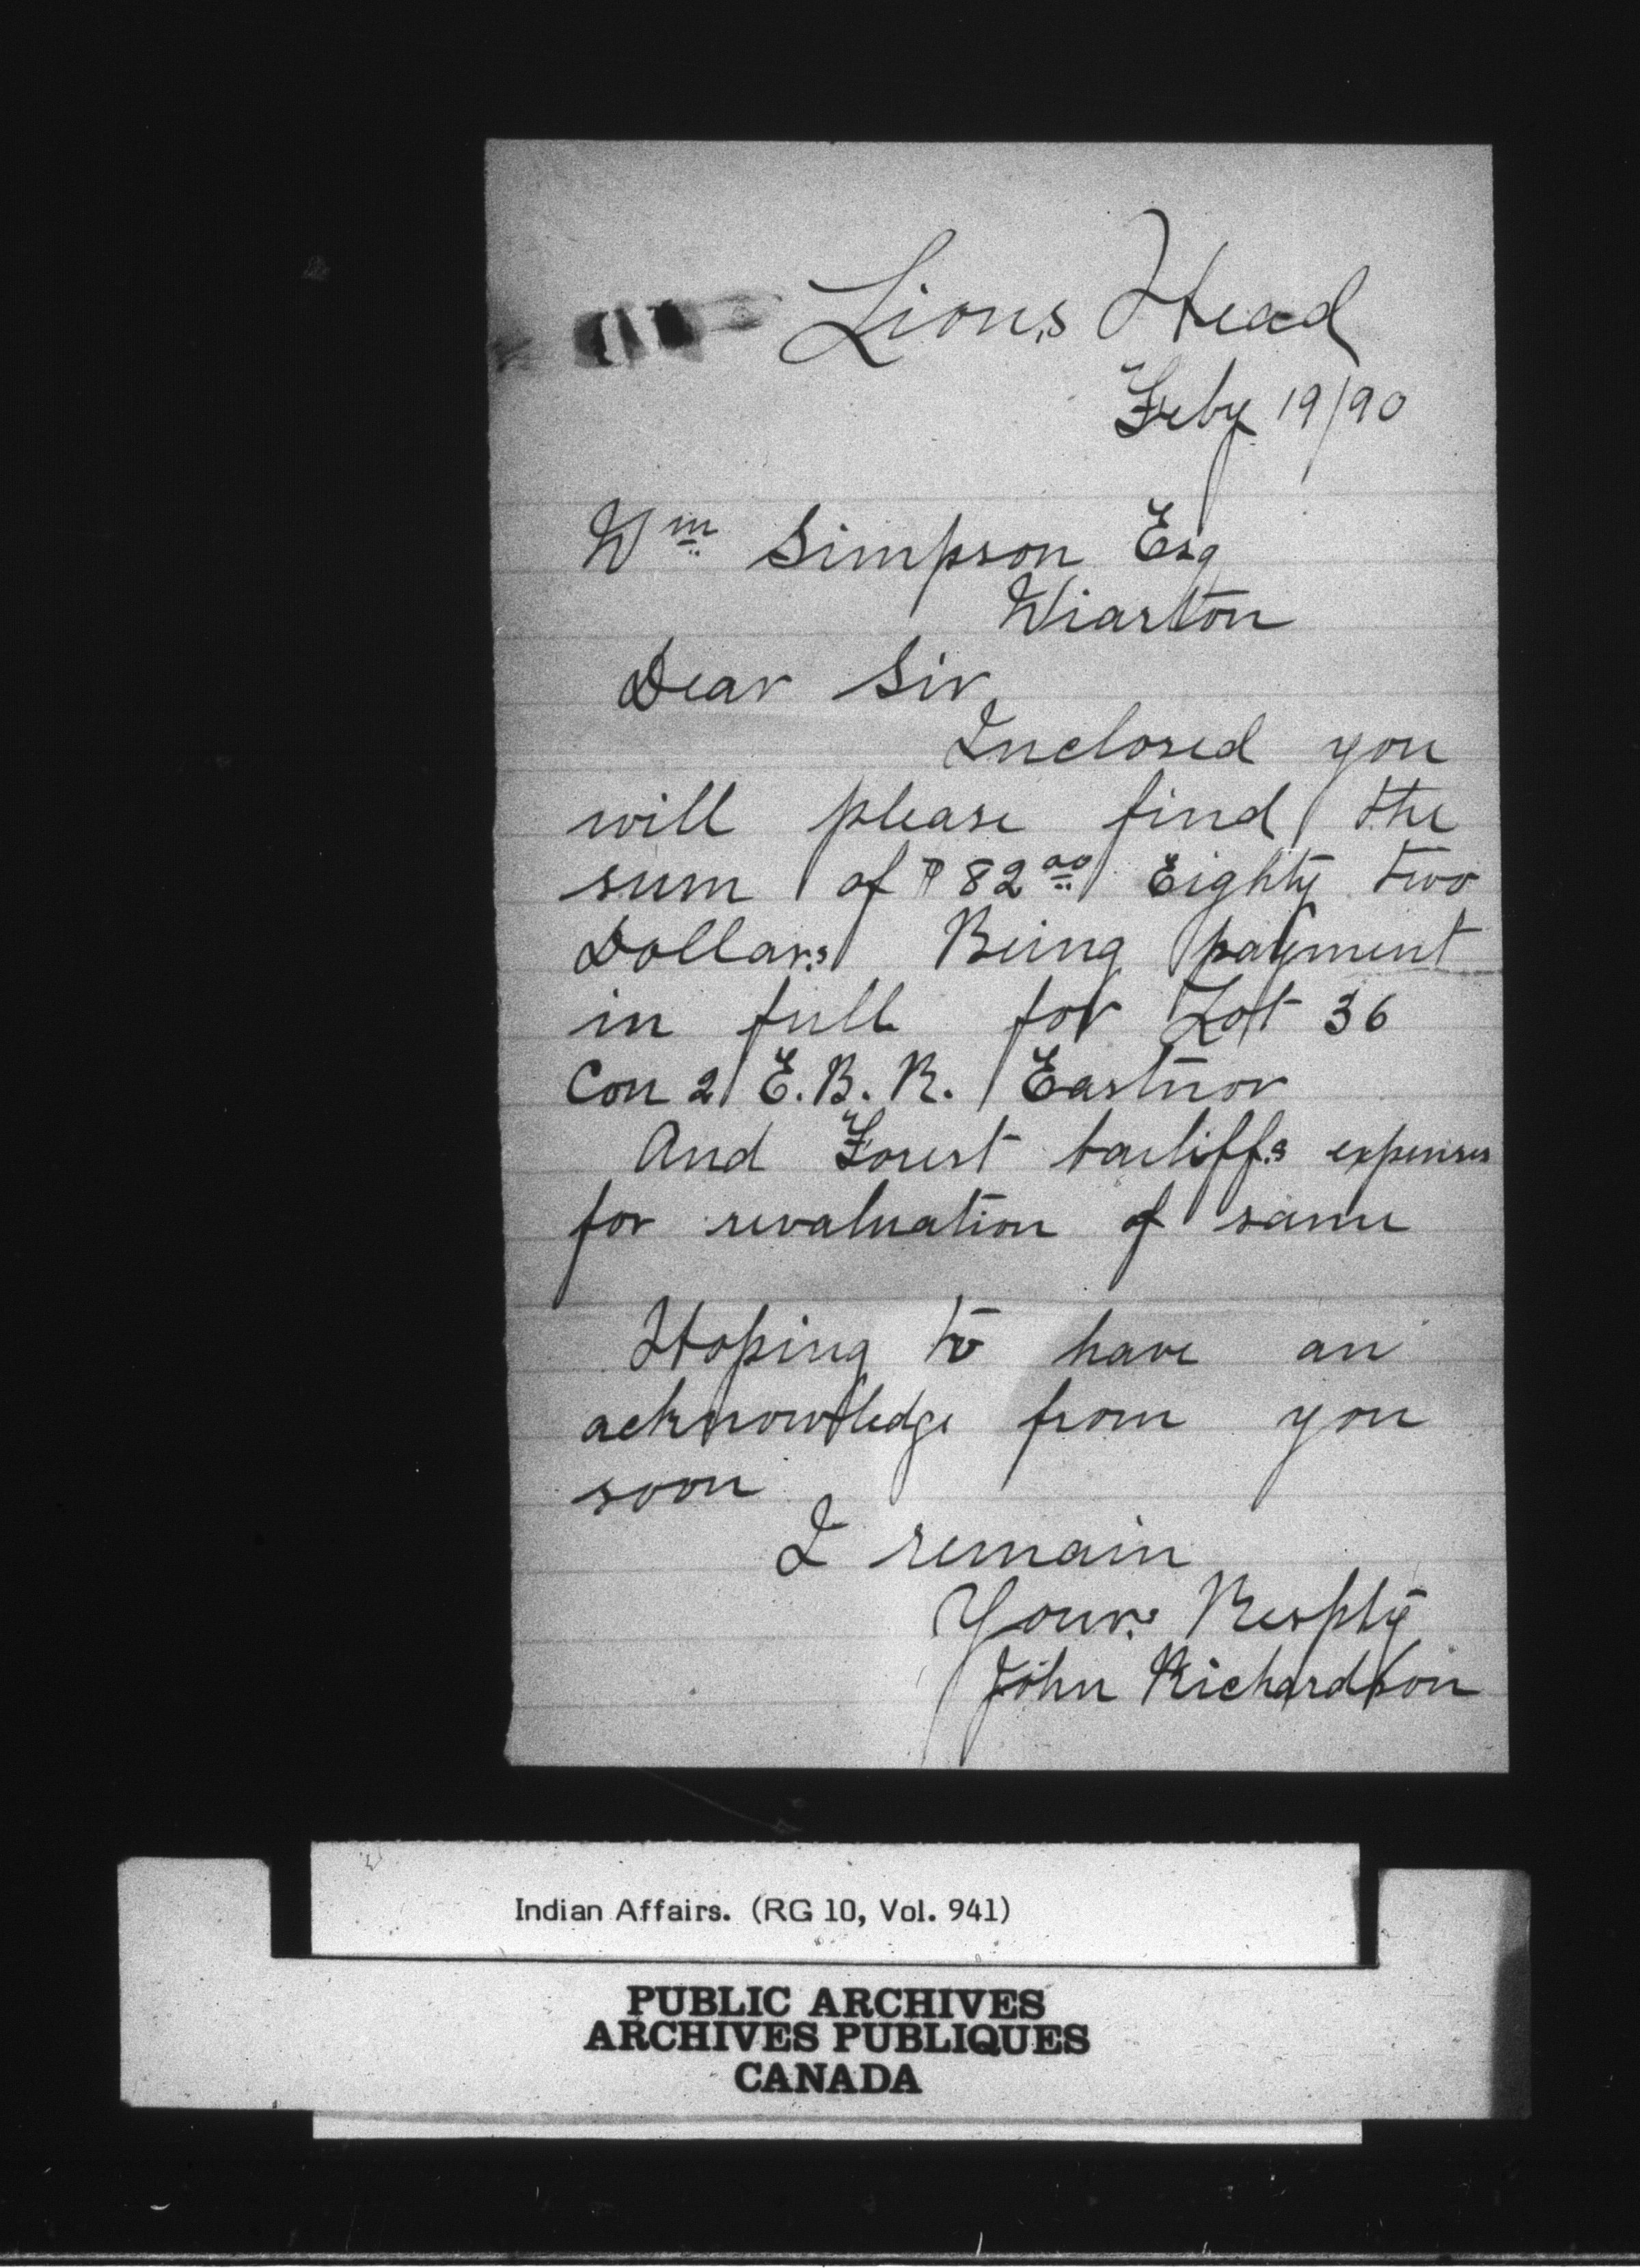 Lions Head
Feby 19/90
Wm Simpson Esq
Wiarton
Dear Sir
Inclosed you
will please find the
sum of $82.00 Eighty two
Dollars Being payment
in full for Lot 36
Con 2 E.B.R. Eastnor
And Forest bailiffs expenses
for revaluation of same
Hoping to have an
acknowledge from you
soon
I remain
Yours Respty
John Richardson
Indian Affairs. (RG 10, Vol. 941)
PUBLIC ARCHIVES
ARCHIVES PUBLIQUES
CANADA